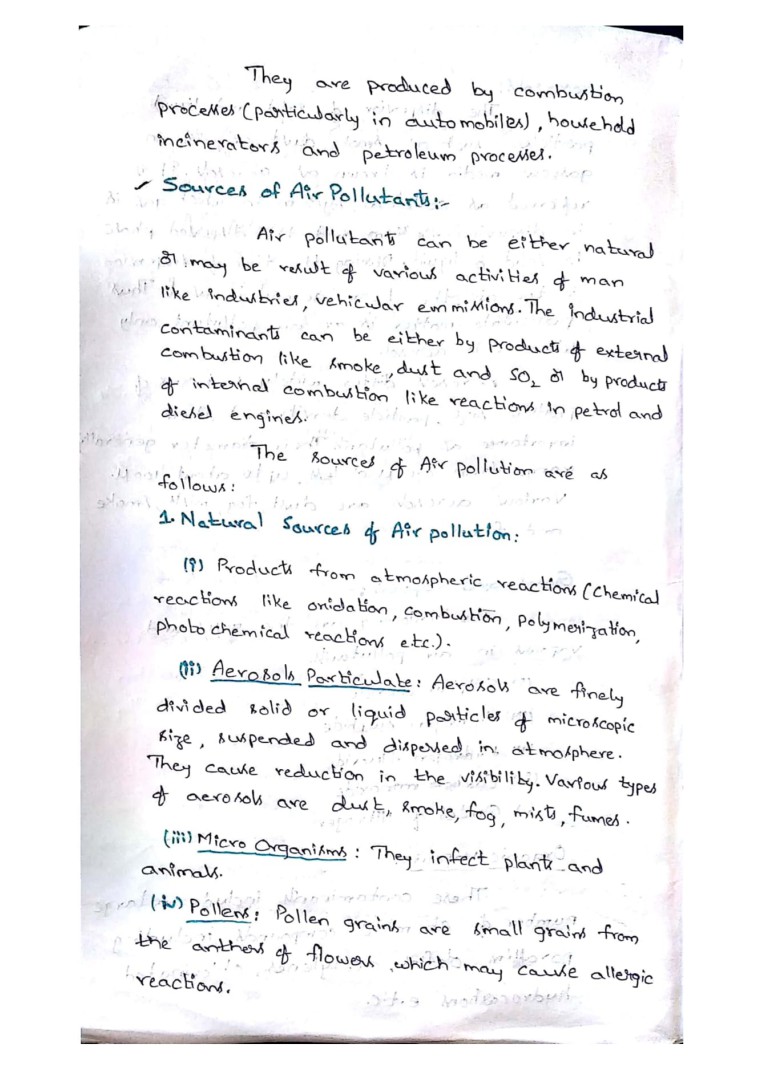 They are produced by combustion
processes (particularly in automobiles), household
incinerators and petroleum processes.
Sources of Air Pollutants:-
Air pollutants can be either natural
or may be result of various activities of man
like industries, vehicular emmissions. The industrial
contaminants can be either by products of external
combustion like smoke, dust and SO₂ or by products
of internal combustion like reactions in petrol and
diesel engines.
The sources of Air pollution are as
follows:
1. Natural Sources of Air pollution:
(i) Products from atmospheric reactions (chemical
reactions like oxidation, combustion, polymerization,
photo chemical reactions etc.).
(ii) Aerosols Particulate: Aerosols are finely
divided solid or liquid particles of microscopic
size, suspended and dispersed in atmosphere.
They cause reduction in the visibility. Various types
of aerosols are dust, smoke, fog, mists, fumes.
(iii) Micro Organisms: They infect plants and
animals.
(iv) Pollens: Pollen grains are small grains from
the anthers of flowers which may cause allergic
reactions.